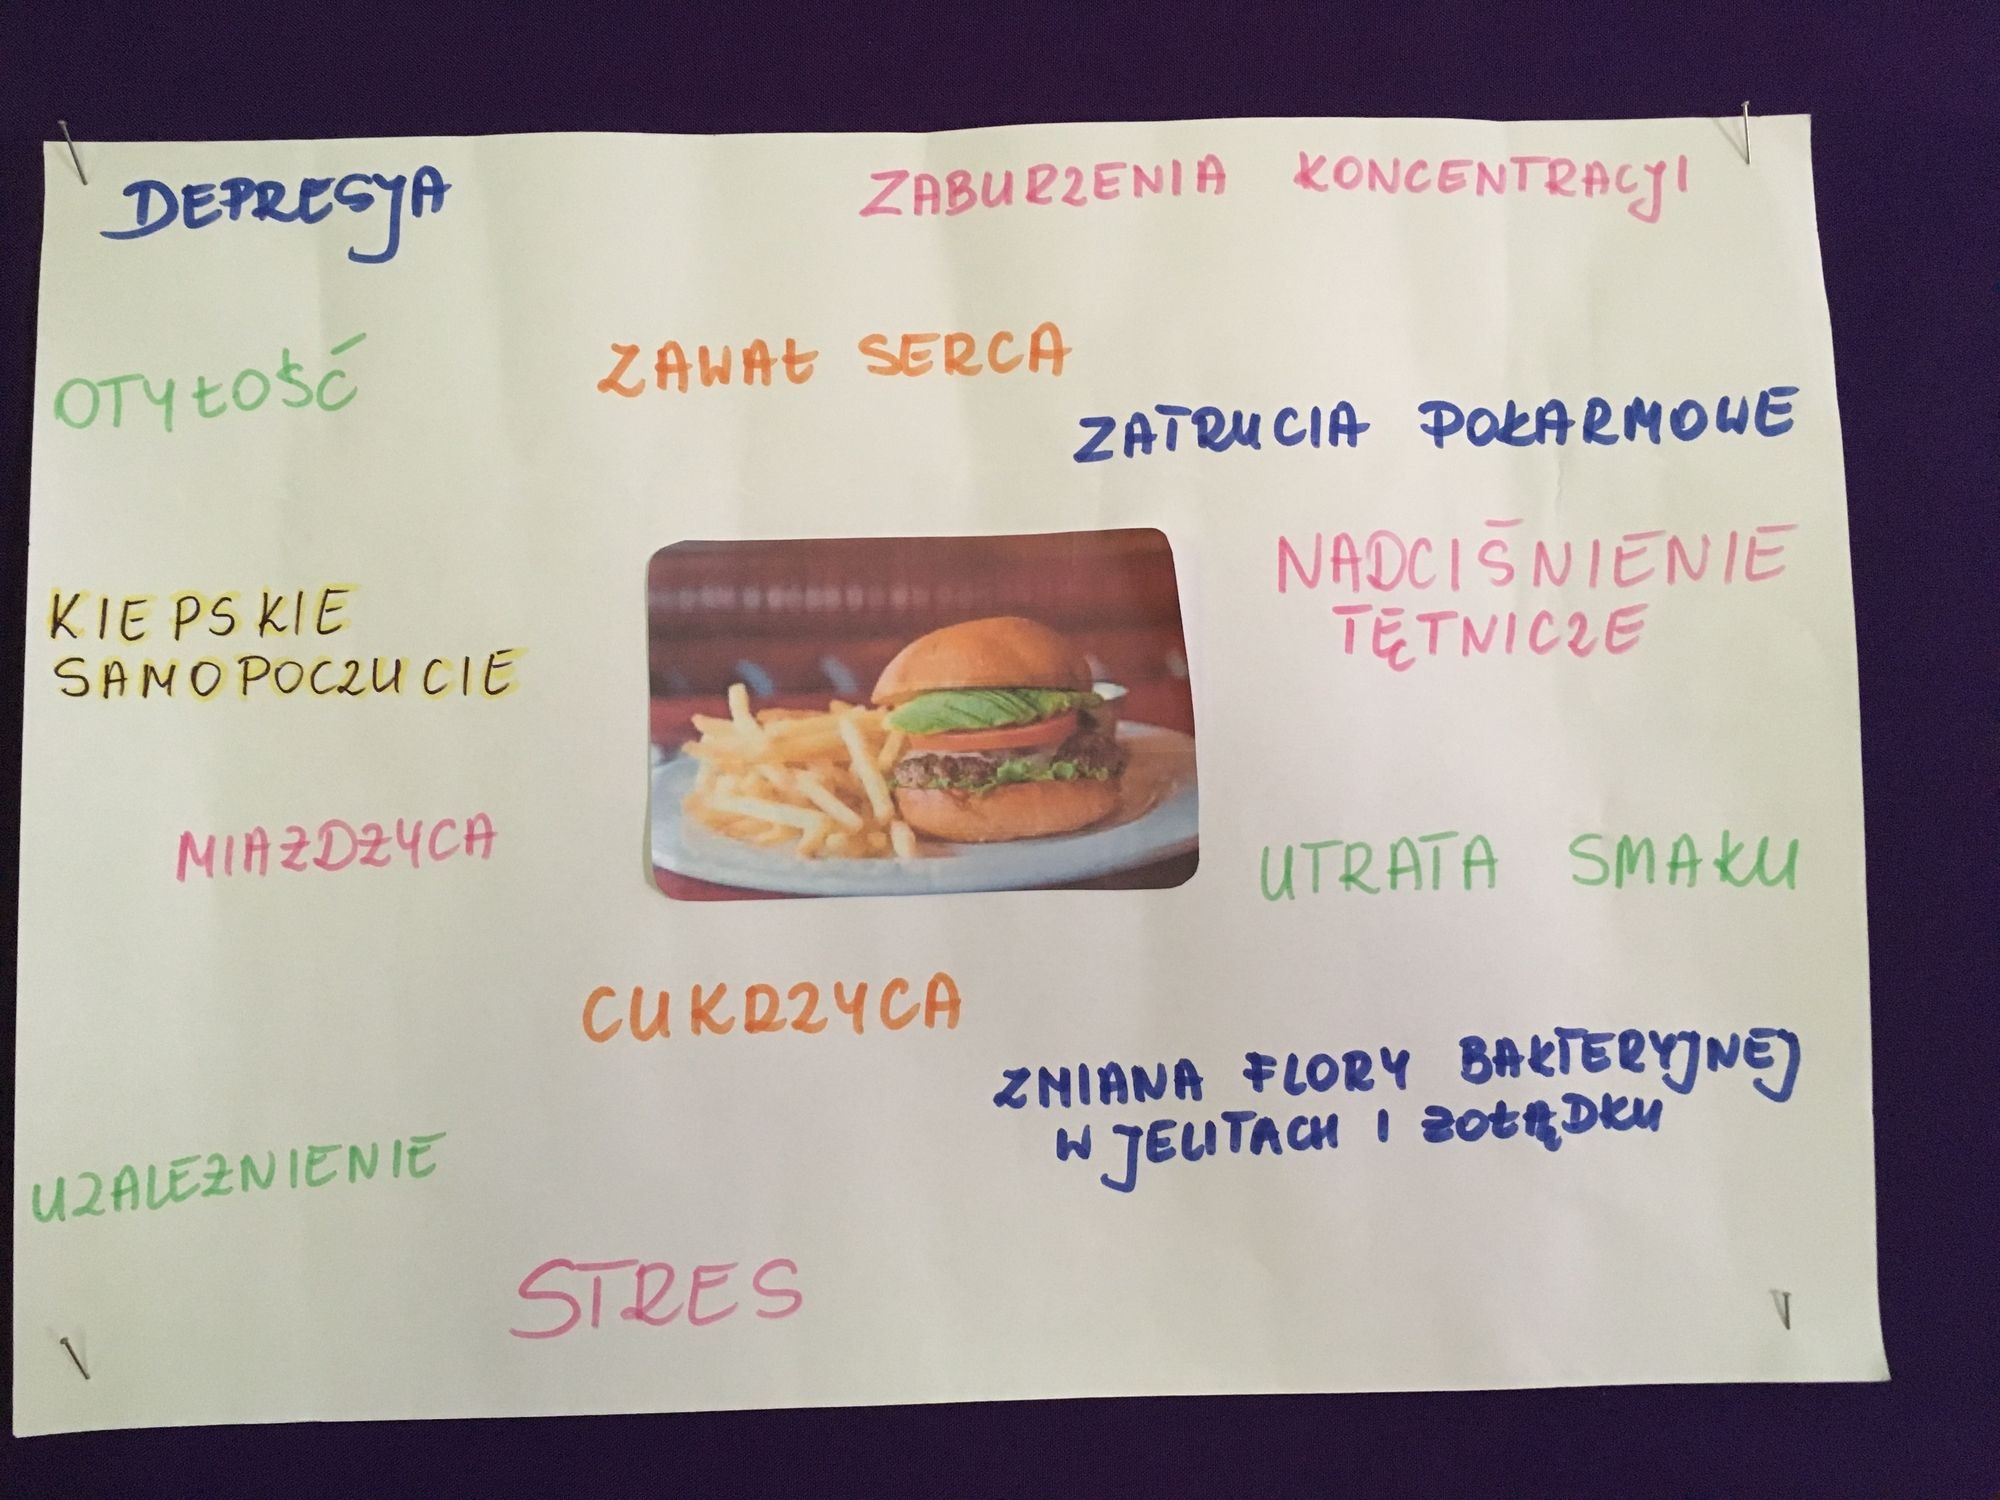 DEPRESJA
ZABURZENIA KONCENTRACJI
OTYŁOŚĆ
ZAWAŁ SERCA
ZATRUCIA POKARMOWE
KIEPSKIE
SAMOPOCZUCIE
NADCIŚNIENIE
TĘTNICZE
MIAŻDŻYCA
UTRATA SMAKU
CUKRZYCA
ZMIANA FLORY BAKTERYJNEJ
W JELITACH I ŻOŁĄDKU
UZALEŻNIENIE
STRES